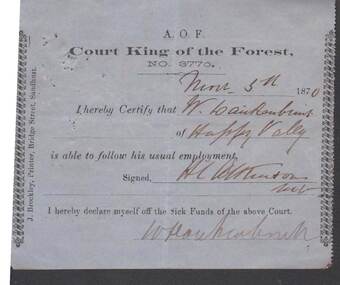 A. O. F.
Court King of the Forest,
NO. 3770.
Novr 5th 1870
I hereby Certify that W.
of Happy Vally
is able to follow his usual employment,
Signed, H L Atkinson
I hereby declare myself off the Sick Funds of the above Court.
W
J. Beeckley, Printer, Bridge Street, Sandhurst.